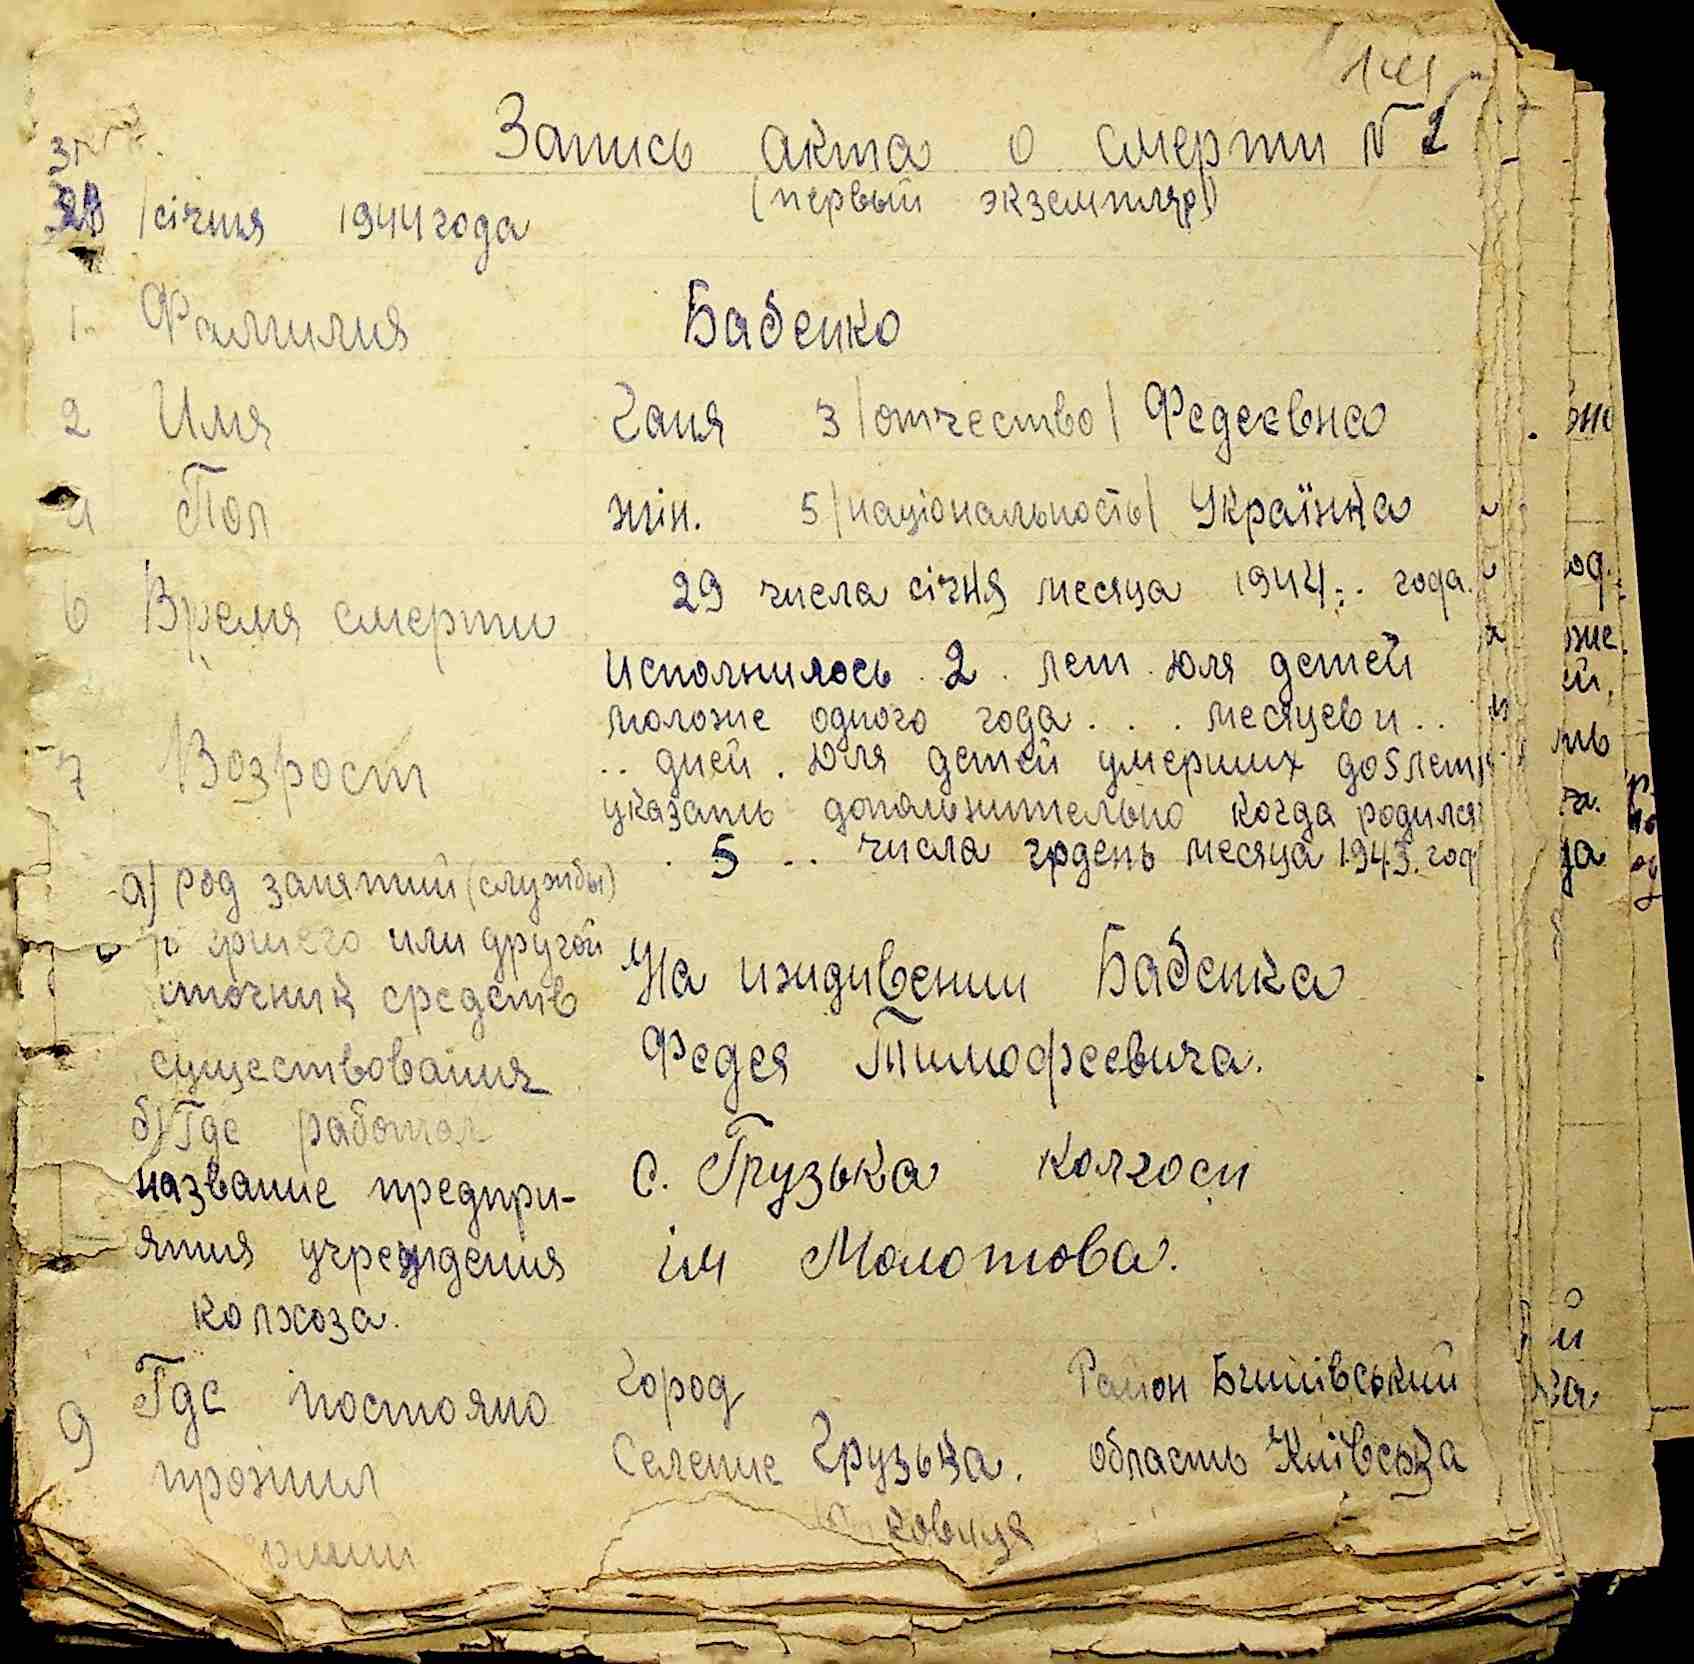 Запись акта о смерти N 2
(первый экземпляр)
січня 1944 года
1. Фамилия Бабенко
2 Имя Ганя 3 /отчество/ Федеевна
4 Пол жін. 5 /національность/ Українка
6 Время смерти 29 числа січня месяца 1944 . . года.
7 Возрост исполнилось . 2 . лет. Для детей
моложе одного года . . . месяцев и . .
. . дней . Для детей умерших до 5 лет
указать дополнительно когда родился
. 5 . . числа грдень месяца 1943. год
а) род занятий (службы)
или другой На иждивении Бабенка
точник средств
существования Федея Тимофеевича.
б) Где работал
название предпри- с. Грузька колгосп
ятия учреждения ім Молотова.
колхоза.
9 Где постояно Город Район Бишівський
прожил Селение Грузька. область Київська